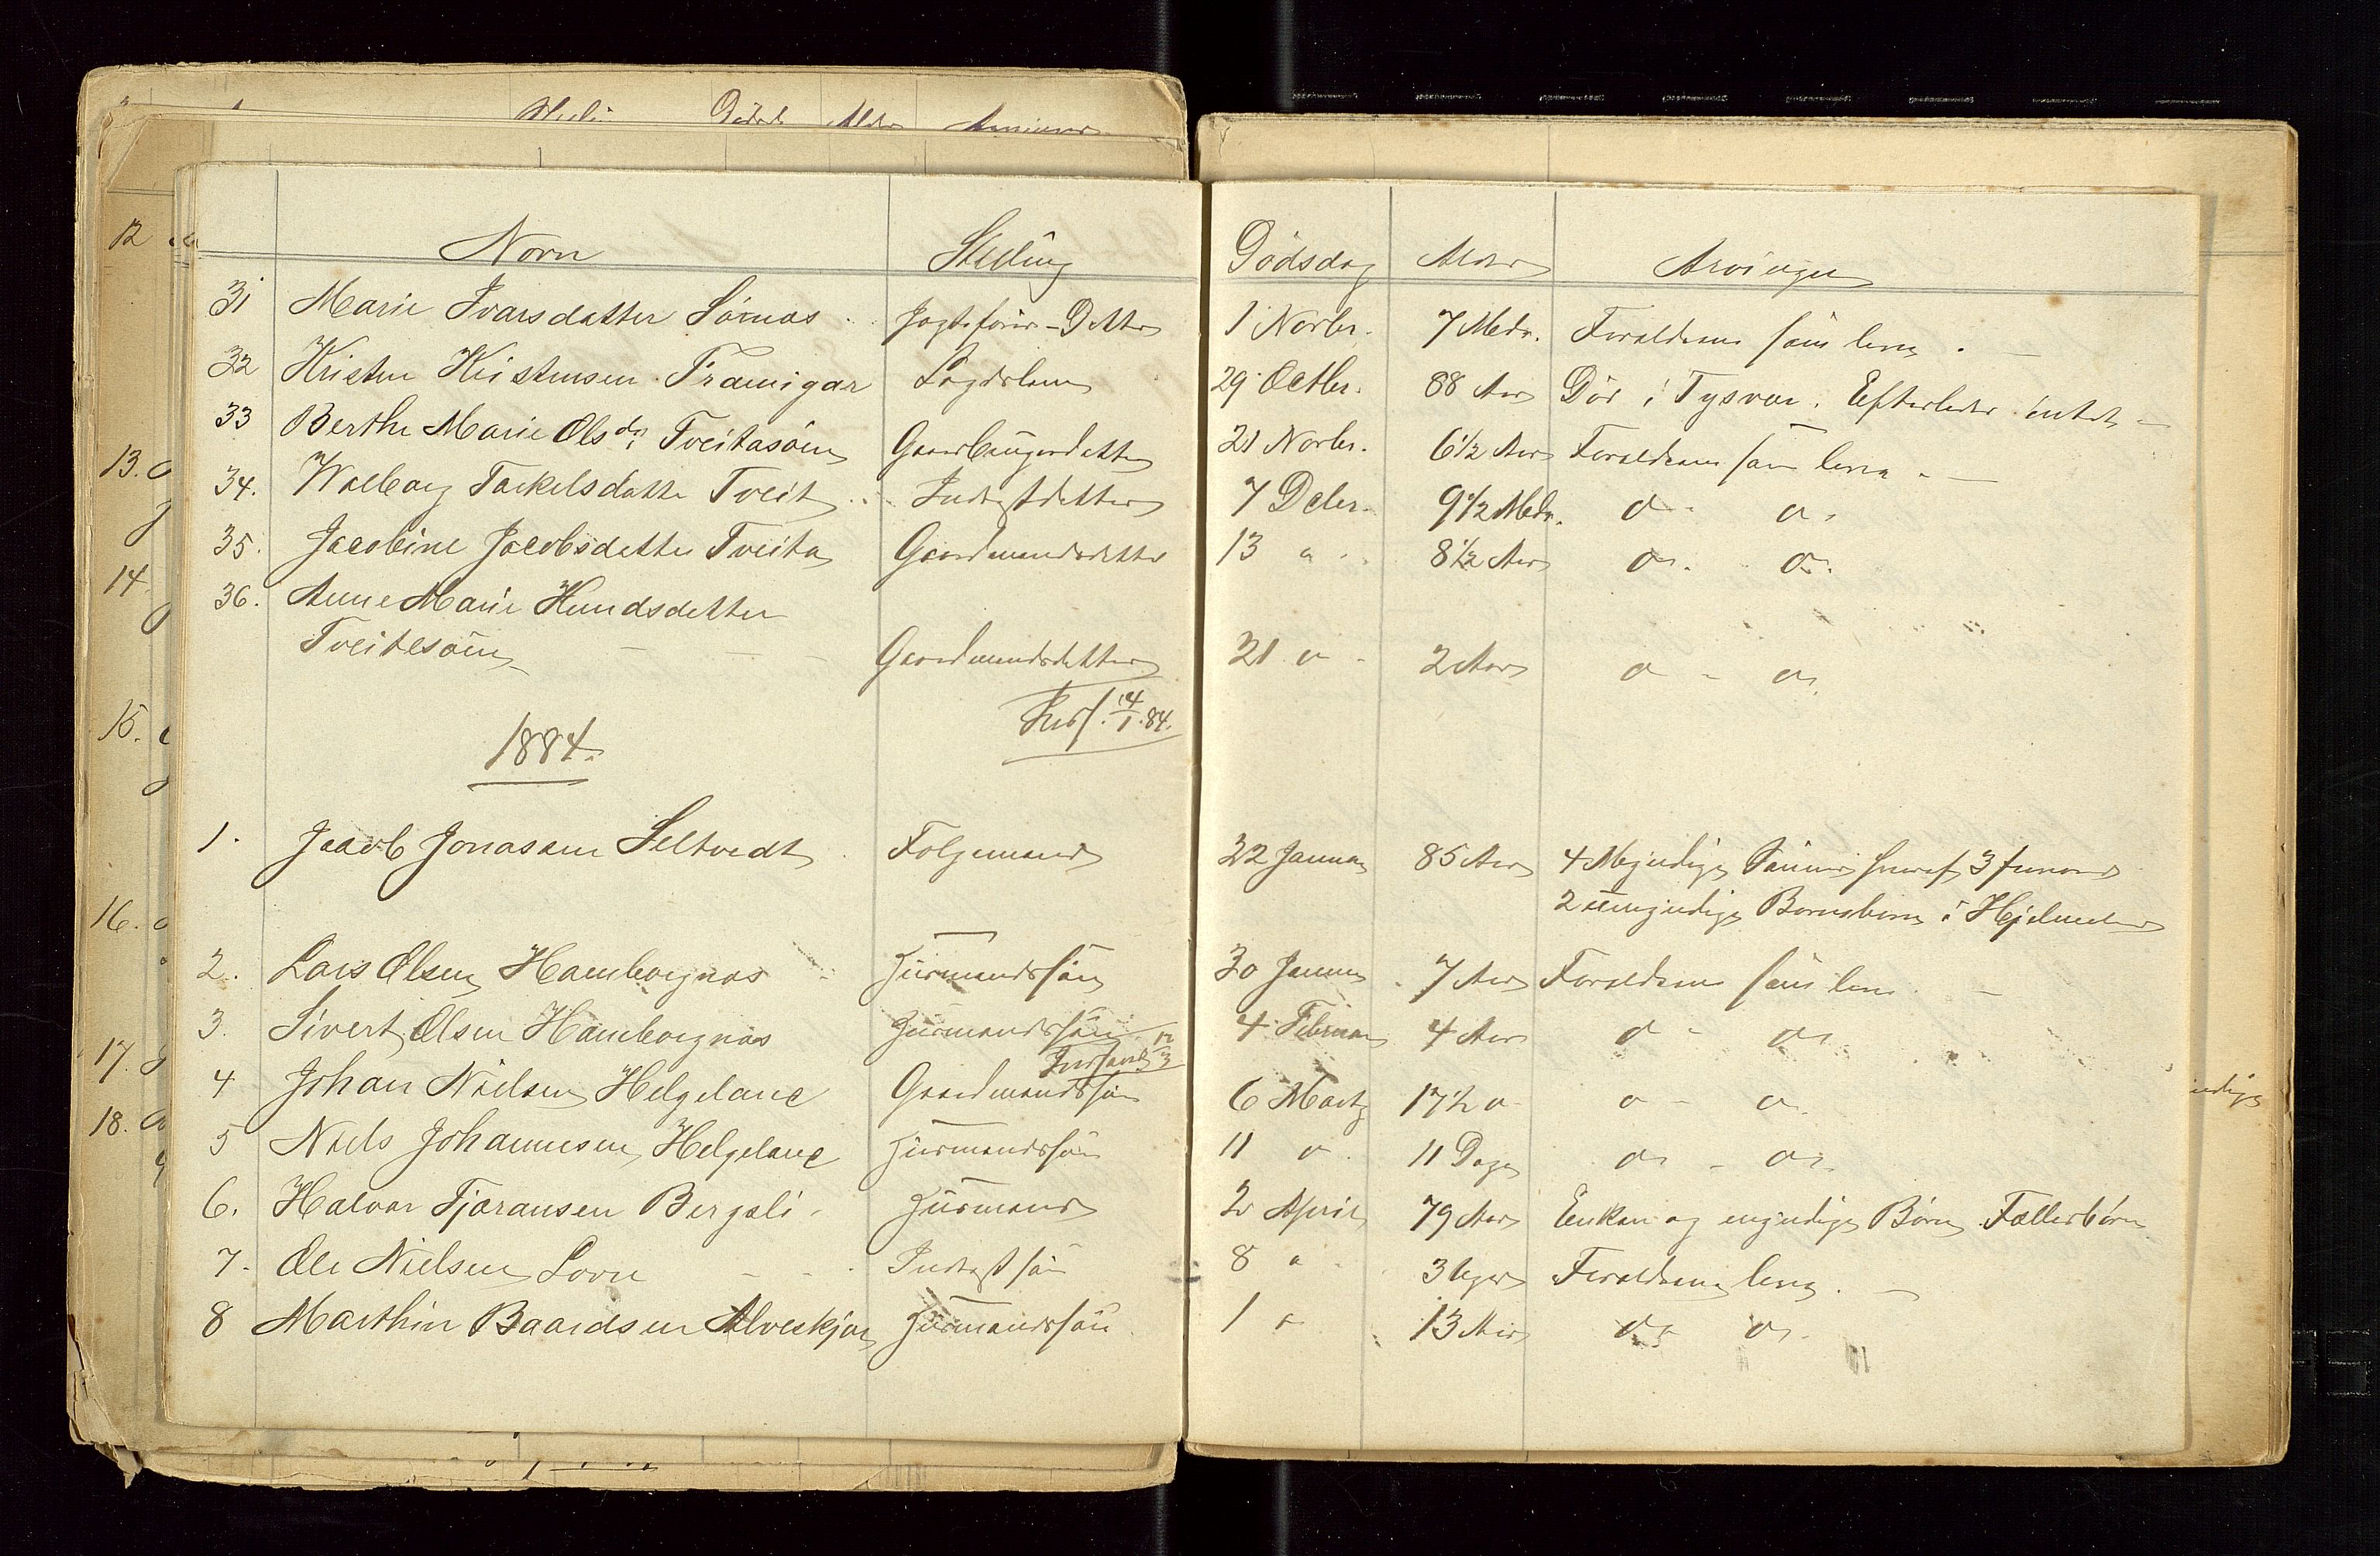 Navn Stilling Dödsdag Alder Arvinger
31 Marie Ivarsdatter Sörnæs Jagtförer-Datter 1 Novbr. 7 Mdr. Foreldrene som leve.
32 Kristen Kristensen Framigar Lægdslem 29 Octbr. 88 Aar Död i Tysvær. Efterlader intet
33 Berthe Marie Olsdr Tveitasöen Gaardbrugerdatter 21 Novbr. 6 1/2 Aar Forældrene som leve.
34. Walborg Torkelsdatter Tveit Inderstdatter 7 Decbr. 9 1/2 Mdr. do do
35. Jacobine Jacobsdatter Tveita Gaardmandsdatter 13 " 8 1/2 Aar do. do.
36. Anne Marie Hundsdatter
Tveitesöen Gaardmandsdatter 21 do 2 Aar do - do
Inds. 14/1.84.
1884.
1. Jacob Jonasen Seltvedt Folgemand 22 Januar 85 Aar 4 Myndige Sönner hvoraf 3
2 umyndige Bornebørn i Hjelmeland
2. Lars Olsen Hamborgnæs Husmandssön 30 Januar 7 Aar Forældrene som leve
3. Sivert Olsen Hamborgnæs Husmandssön 4 Februar 4 Aar do - do
Indsendt 12/3
4 Johan Nielsen Helgeland Gaardmandssön 6 Marts 17 1/2 do do - do.
5 Niels Johannesen Helgeland Husmandssön 11 do. 11 Dage do - do.
6. Halvor Tjøransen Bergsli Husmand 2 April 79 Aar Enken og myndige Börn. Fællesbörn
7. Ole Nielsen Lovn Inderstsön 8 " 3 Uger Forældrene leve.
8 Marthin Baardsen Alveskjær Husmandssön 1 " 13 Aar do do.
12
13.
14.
15.
16.
17.
18.